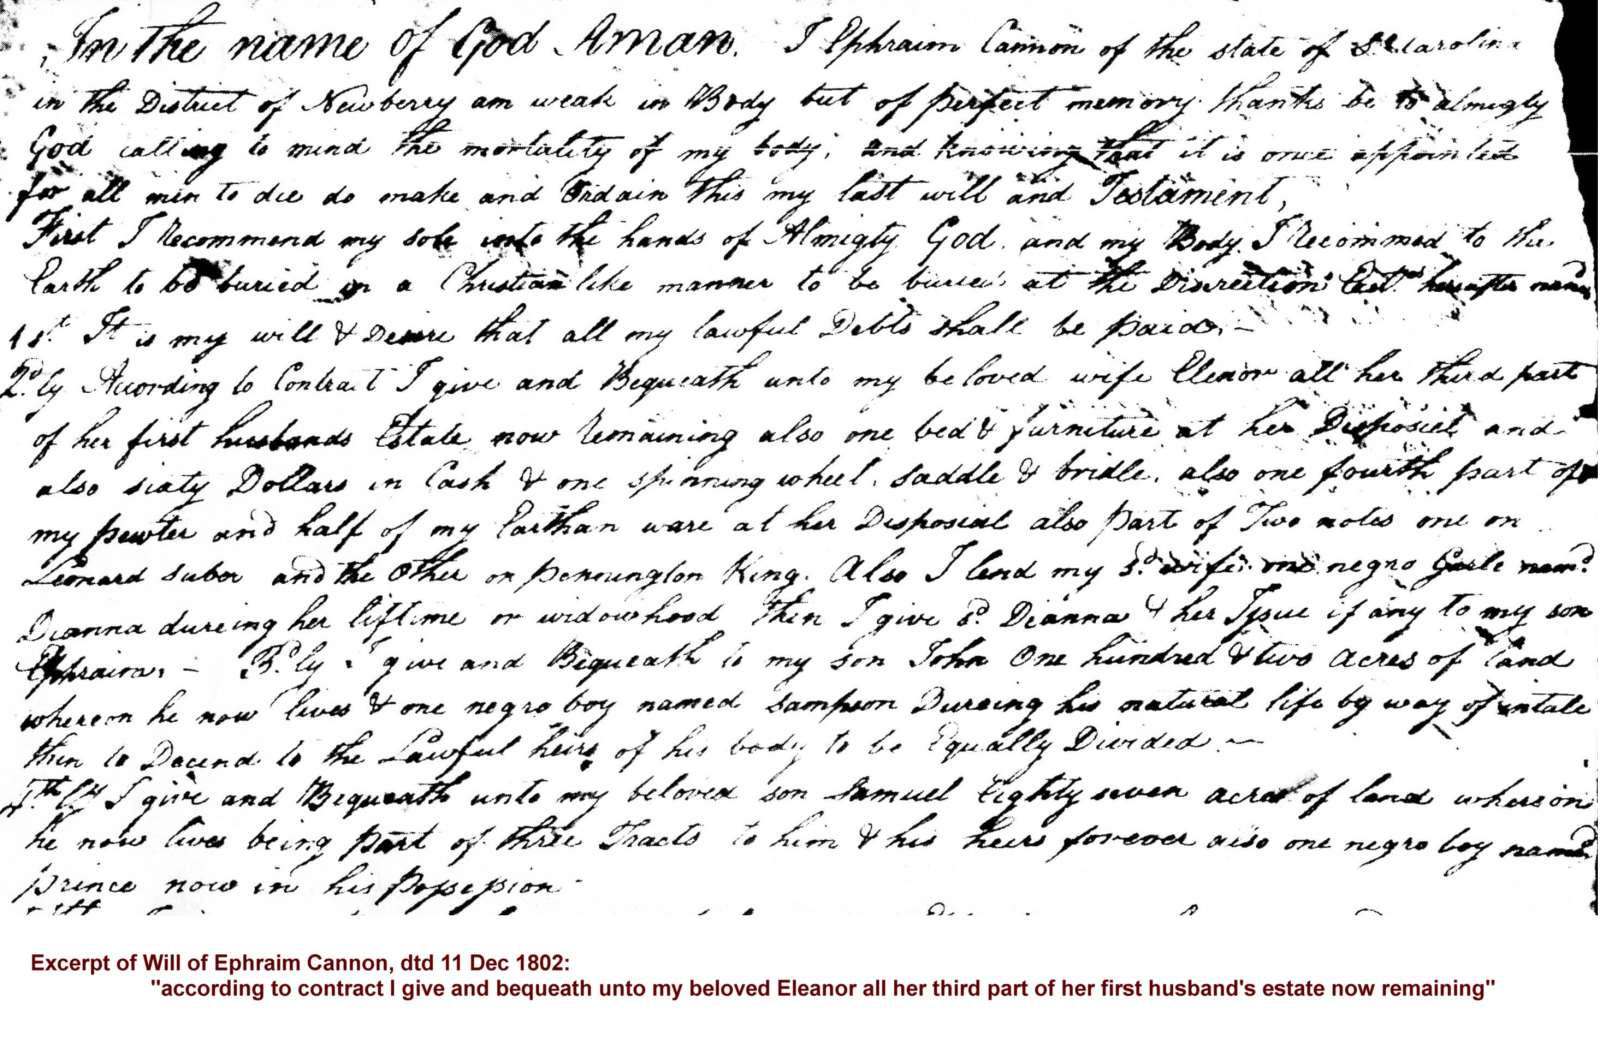 In the name of God Aman. I Ephraim Cannon of the state of So Carolina
in the District of Newberry am weak in Body but of perfect memory thanks be to almigty
God calling to mind the mortality of my body, and knowing that it is once appointed
for all men to die do make and Ordain this my last will and Testament,
First I Recommend my sole into the hands of Almigty God. and my Body I Recommed to the
Earth to be buried in a Christian like manner to be buried at the Discreetion Exetr hereafter named
1st It is my will & Desire that all my lawful Debts shall be paid, —
2dly According to Contract I give and Bequeath unto my beloved wife Elenor all her third part
of her first husbands Estate now Remaining also one bed & furniture at her Disposiel and
also sixty Dollars in Cash & one spinning wheel, saddle & bridle, also one fourth part of
my pewter and half of my Earthan ware at her Disposial also part of Two notes one on
Leonard Suber and the Other on Pennington King. Also I lend my sd wife one negro Gurle namd
Dianna dureing her liftime or widowhood then I give sd Dianna & her Issue if any to my son
Ephraim, — 3dly I give and Bequeath to my son John One hundred & two Acres of land
whereon he now lives & one negro boy named Sampson Dureing his natural life by way of intale
then to Decend to the Lawful heirs of his body to be Equally Divided —
4thly I give and Bequeath unto my beloved son Samuel Eighty seven acres of land whereon
he now lives being part of three Tracts to him & his heirs forever also one negro boy named
prince now in his Possession
Excerpt of Will of Ephraim Cannon, dtd 11 Dec 1802:
"according to contract I give and bequeath unto my beloved Eleanor all her third part of her first husband's estate now remaining"